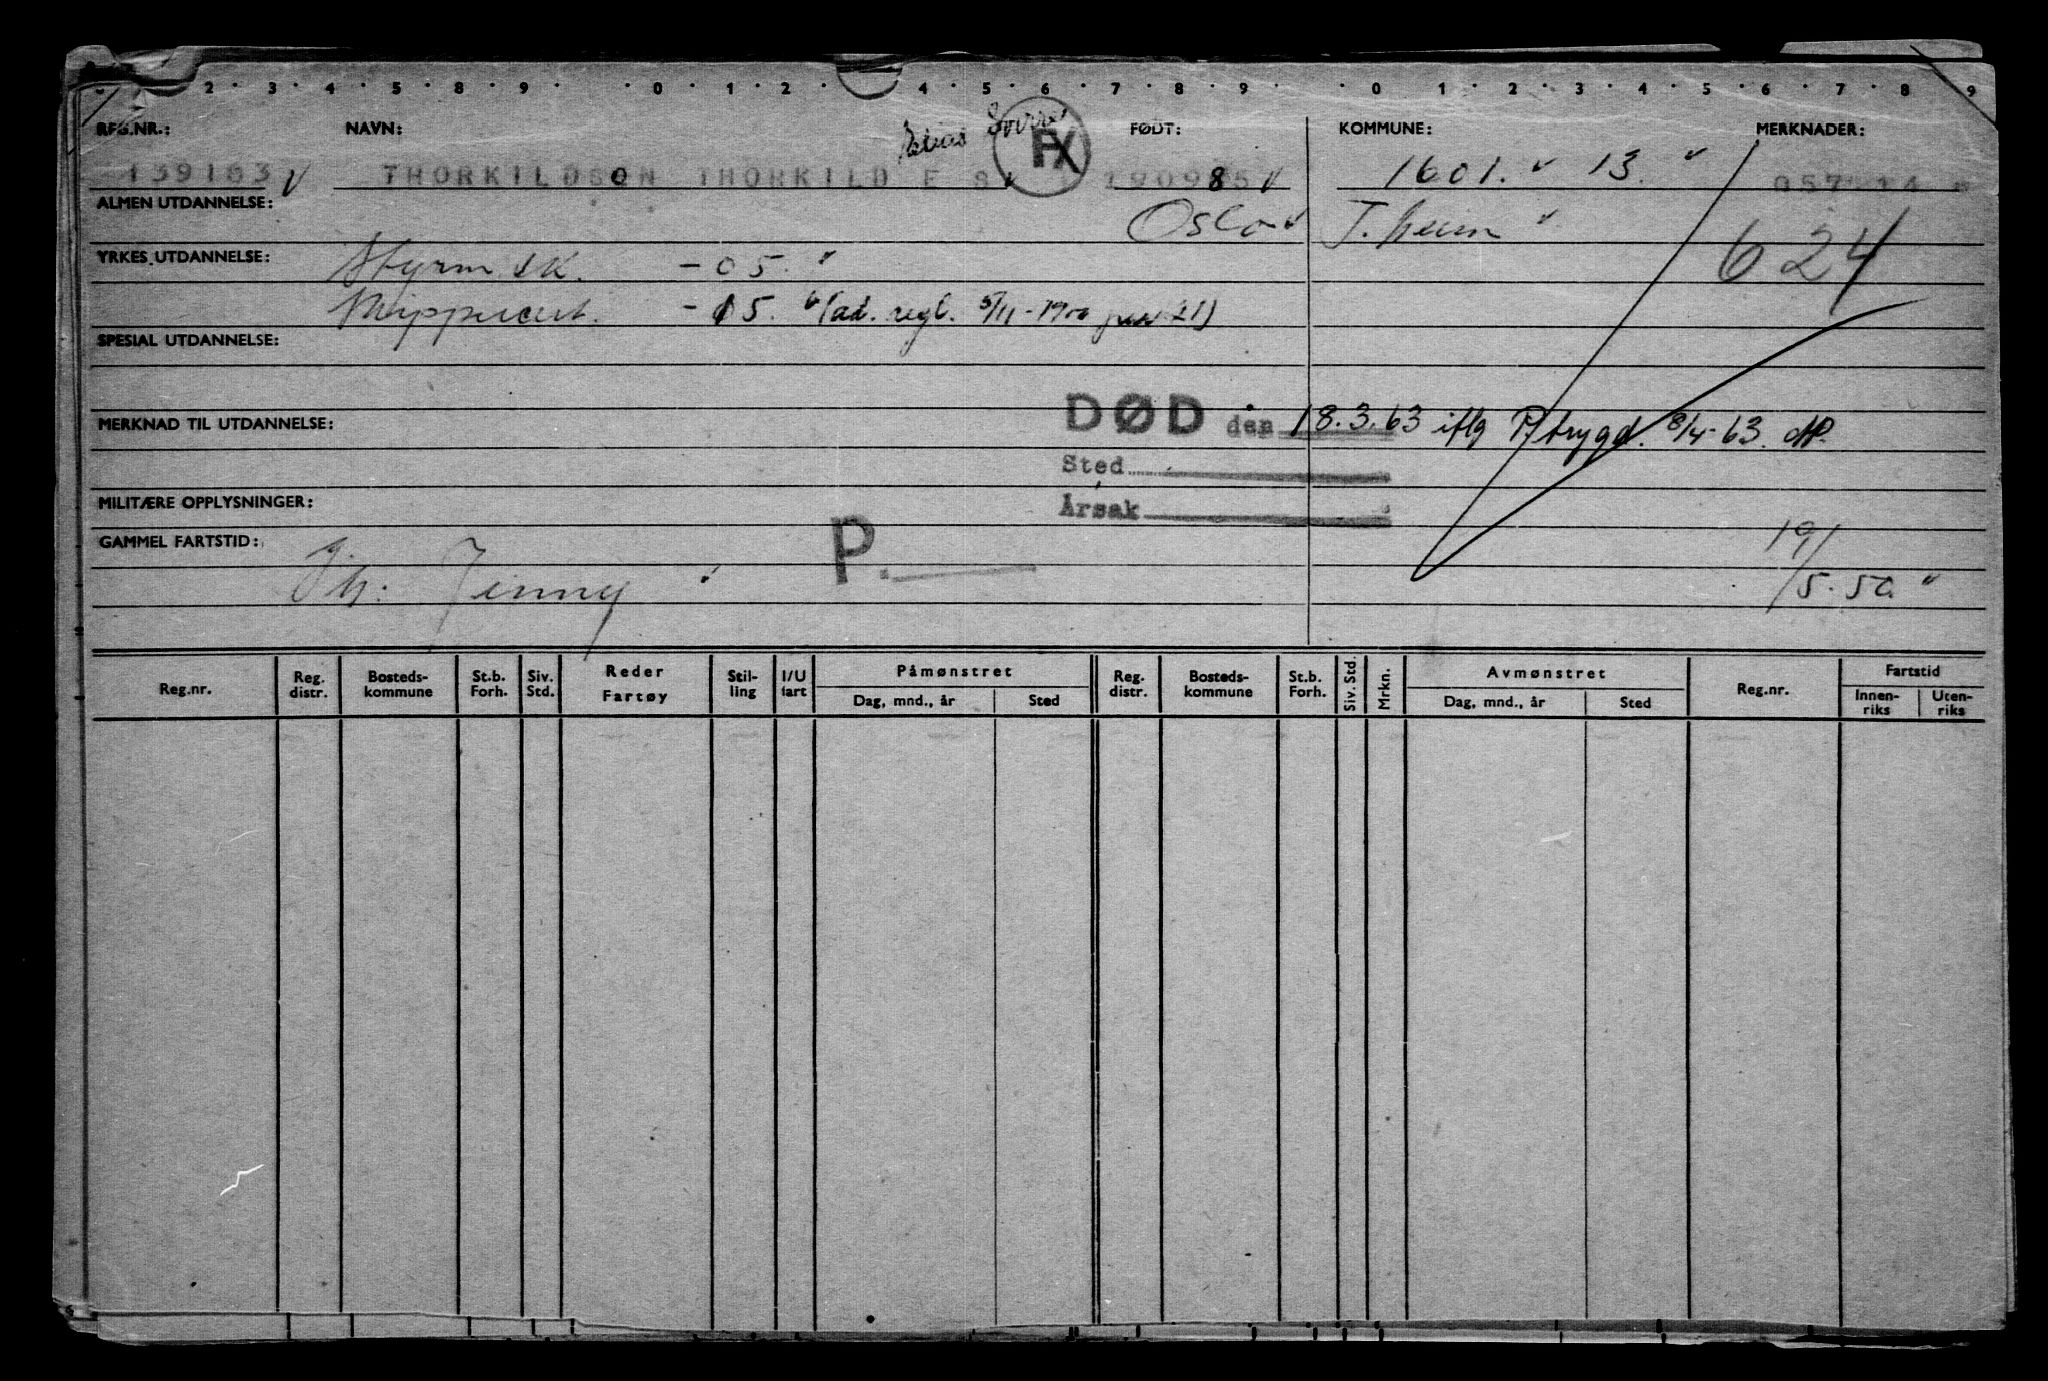 2 3 4 5 8 9 0 1 2 4 5 6 7 8 9 0 1 2 3 4 5 6 7 8 9
REG.NR.: NAVN: Sverre FX FØDT: KOMMUNE: MERKNADER:
139183 v THORKILDSON THORKILD E S v 190985 v 1601. v 13. v 057 14
ALMEN UTDANNELSE: Oslo v T.heim v 624
YRKES UTDANNELSE: Styrm sk. - 05. v
Skippercert. - 15. v (ad. regl. 5/11-1900 21)
SPESIAL UTDANNELSE:
MERKNAD TIL UTDANNELSE: DØD den 18.3.63 iflg P/trygd. 8/4-63.
Sted
MILITÆRE OPPLYSNINGER: Årsak
GAMMEL FARTSTID: P. 19/5.50. v
Jenny v
Reg.nr. Reg. distr. Bosteds-kommune St.b. Forh. Siv. Std. Reder Fartøy Stil-ling I/U fart Påmønstret Dag, mnd., år Sted Reg. distr. Bosteds-kommune St.b. Forh. Siv. Std. Mrkn. Avmønstret Dag, mnd., år Sted Reg.nr. Fartstid Innen-riks Uten-riks